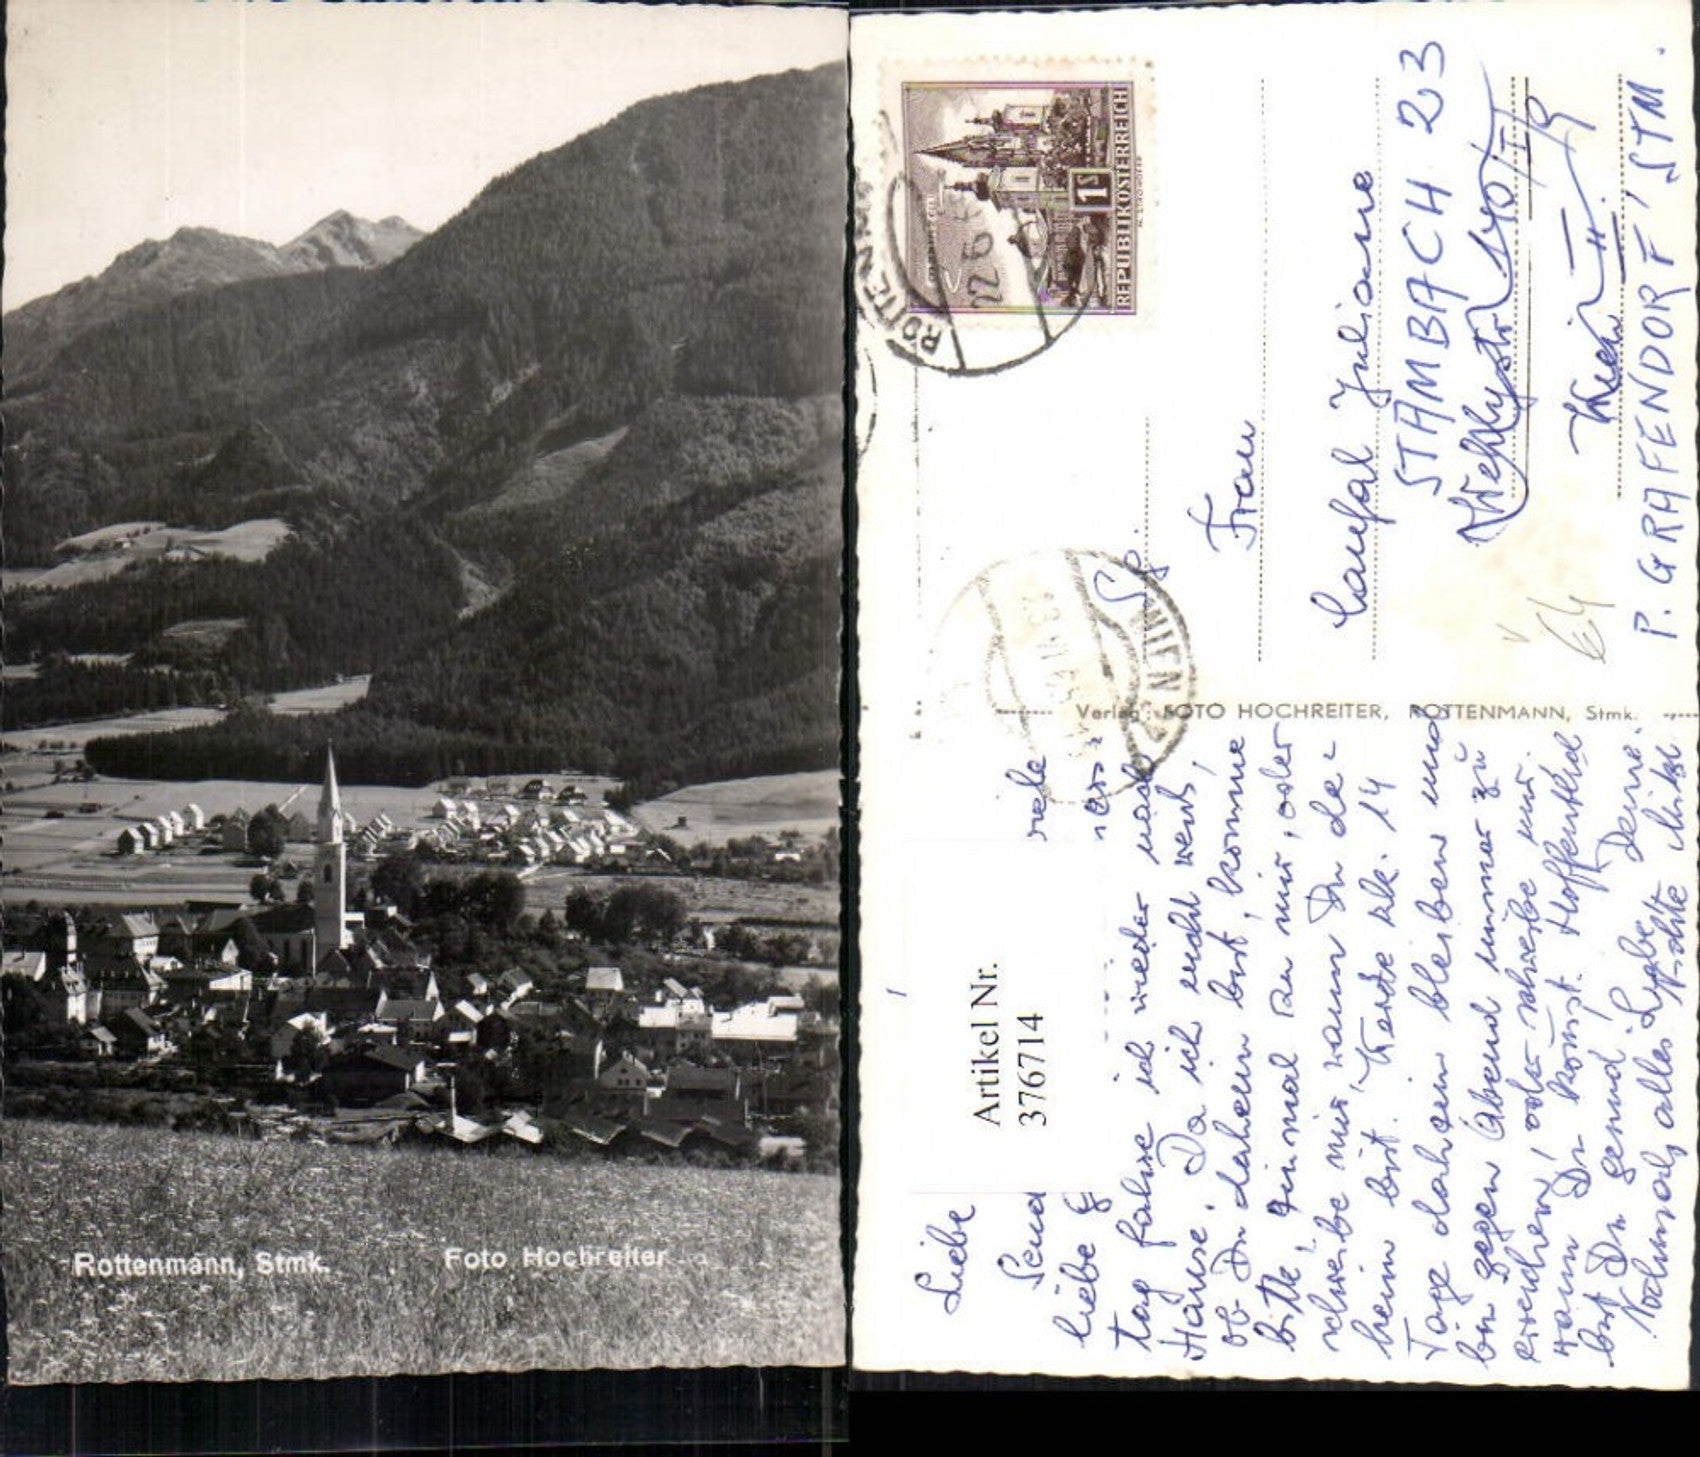 Rottenmann, Stmk.
Foto Hochreiter
REPUBLIK ÖSTERREICH
1 S
ROTTENM
22.6
WIEN
Verlag: FOTO HOCHREITER, ROTTENMANN, Stmk.
Artikel Nr.
376714
Frau
Juliane
STAMBACH 23
P. GRAFENDORF, STM.
Liebe
Send viele
liebe G
tag fahre ich wieder nach
Hause. Da ich nicht weis,
ob Du daheim bist, komme
bitte einmal zu mir, oder
schreibe mir wann Du da=
heim bist. Werde ca. 14
Tage daheim bleiben und
bin gegen Abend immer zu
oder schreibe mir
wann Du kommst. Hoffentlich
bist Du gesund, Deine
Nochmals alles Liebe